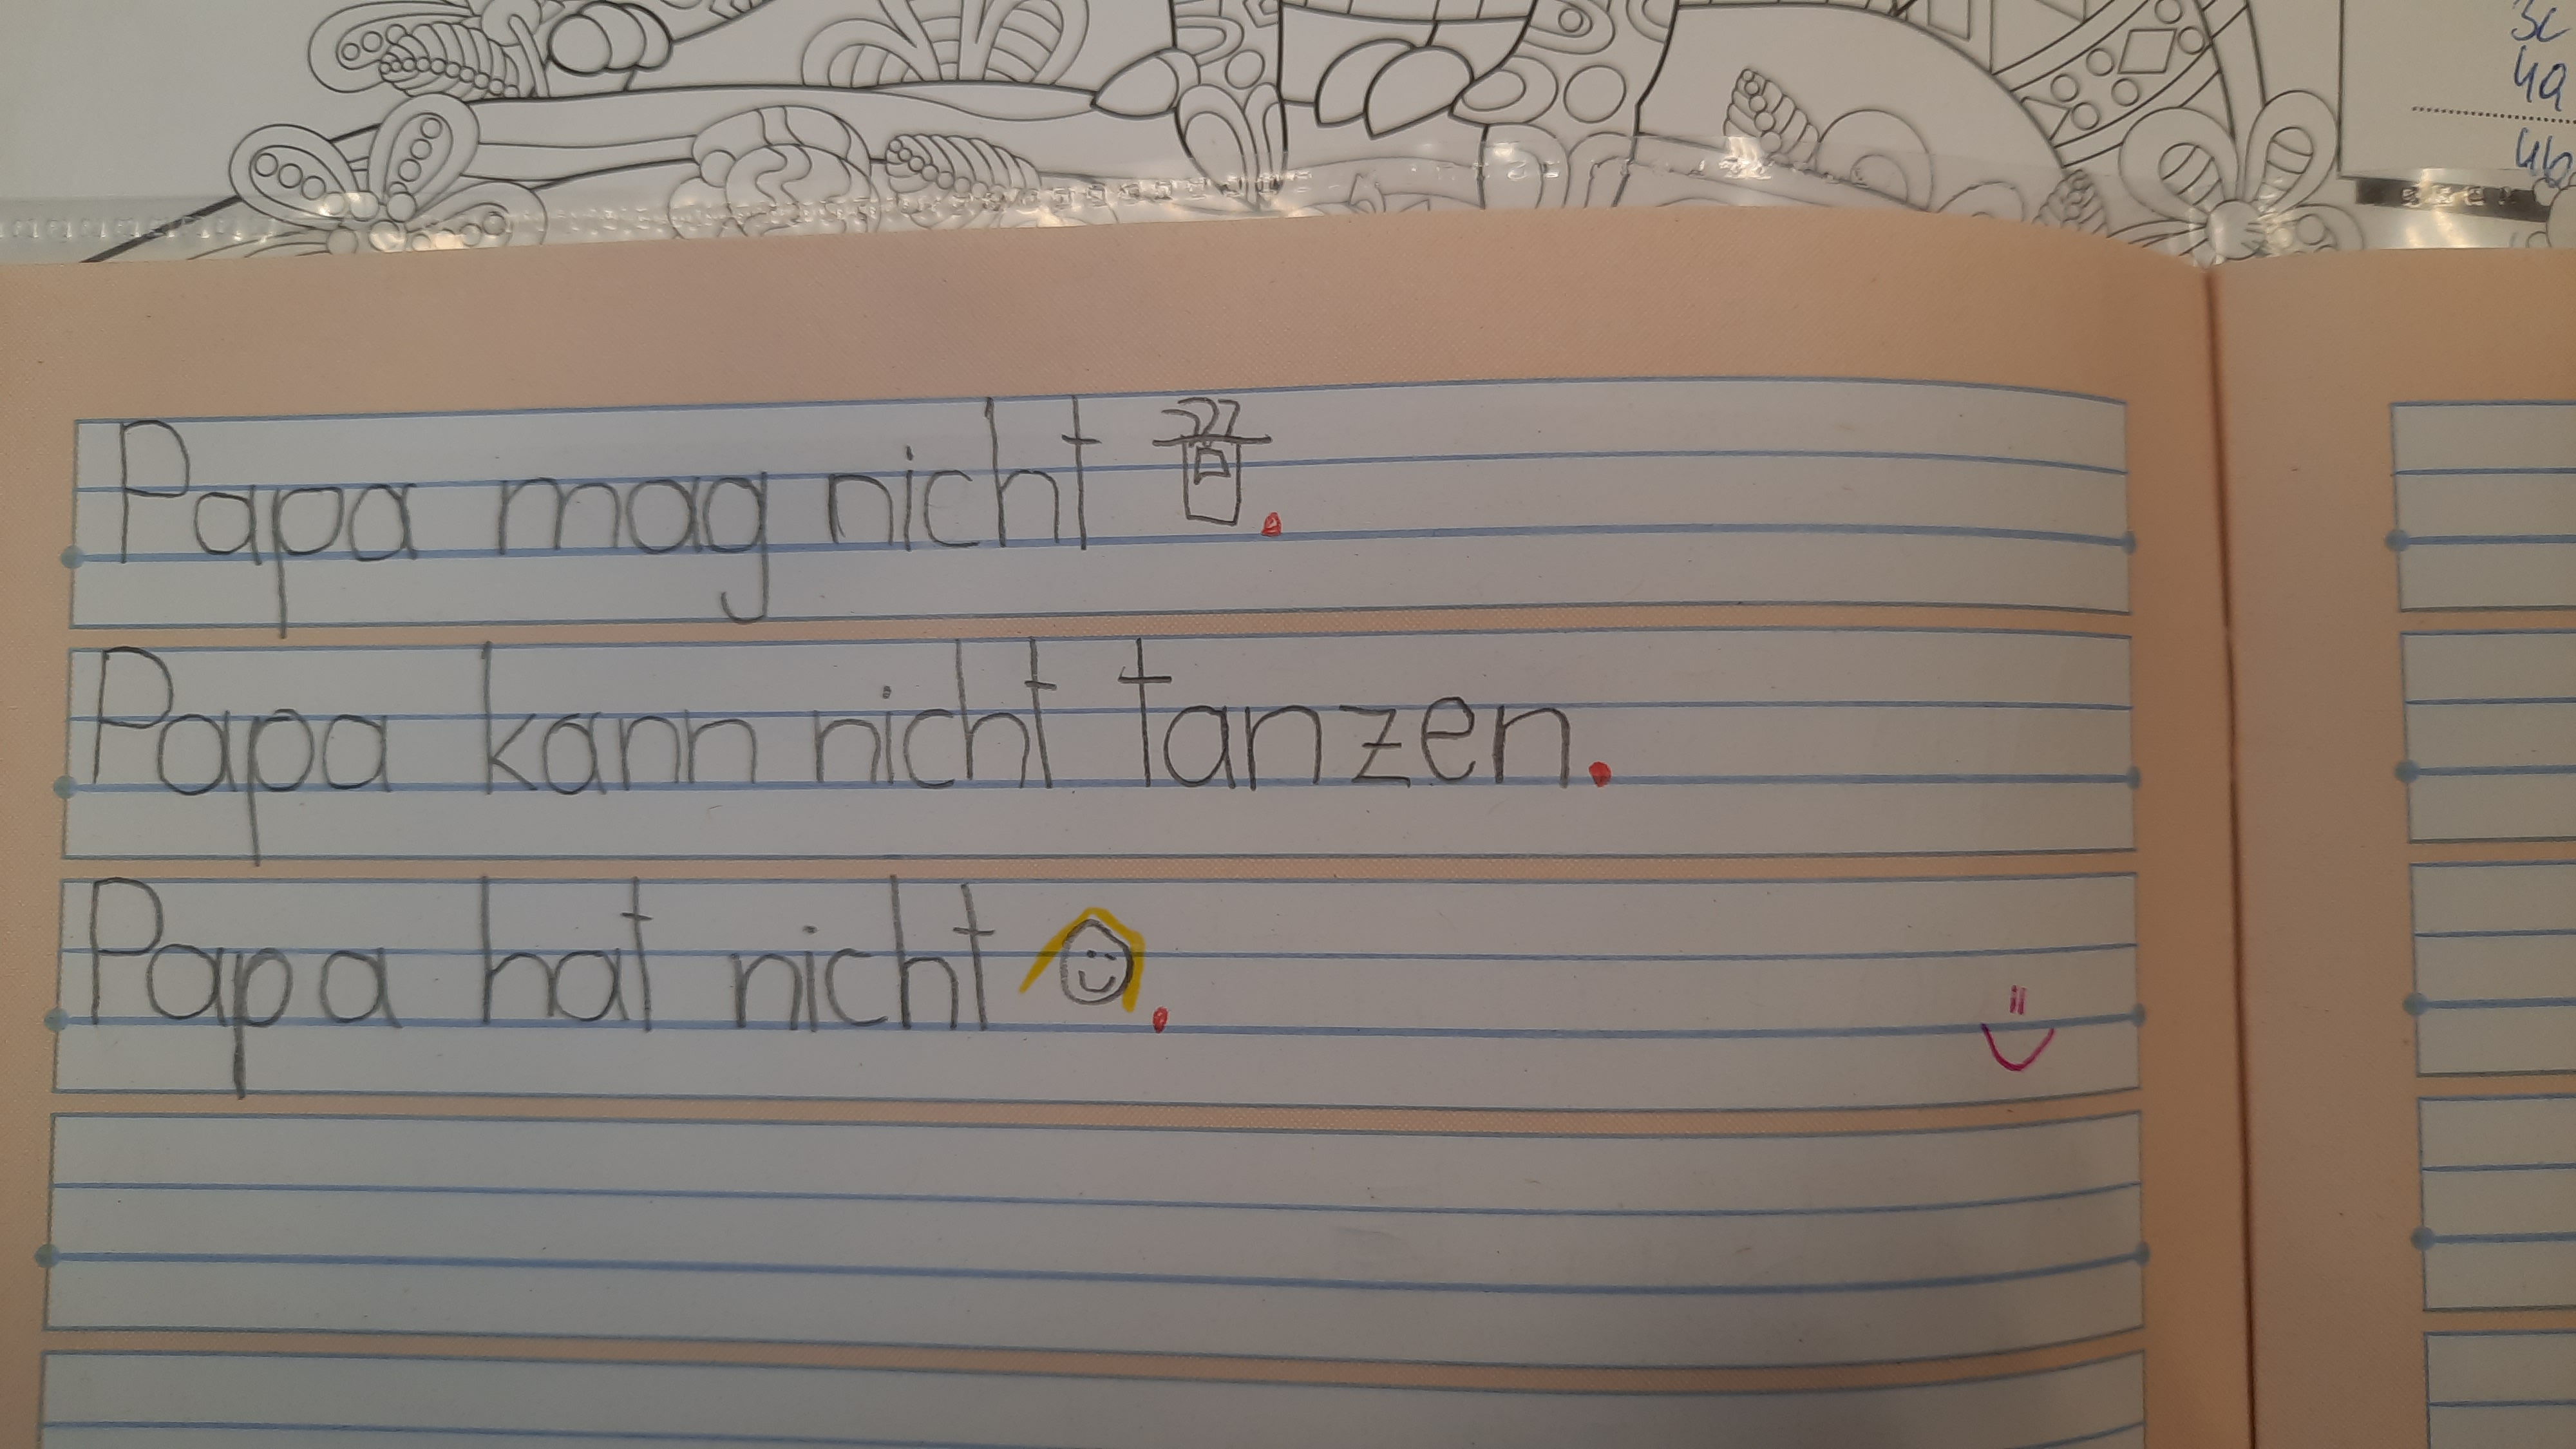 3c
4a
4b
Papa mag nicht .
Papa kann nicht tanzen.
Papa hat nicht .